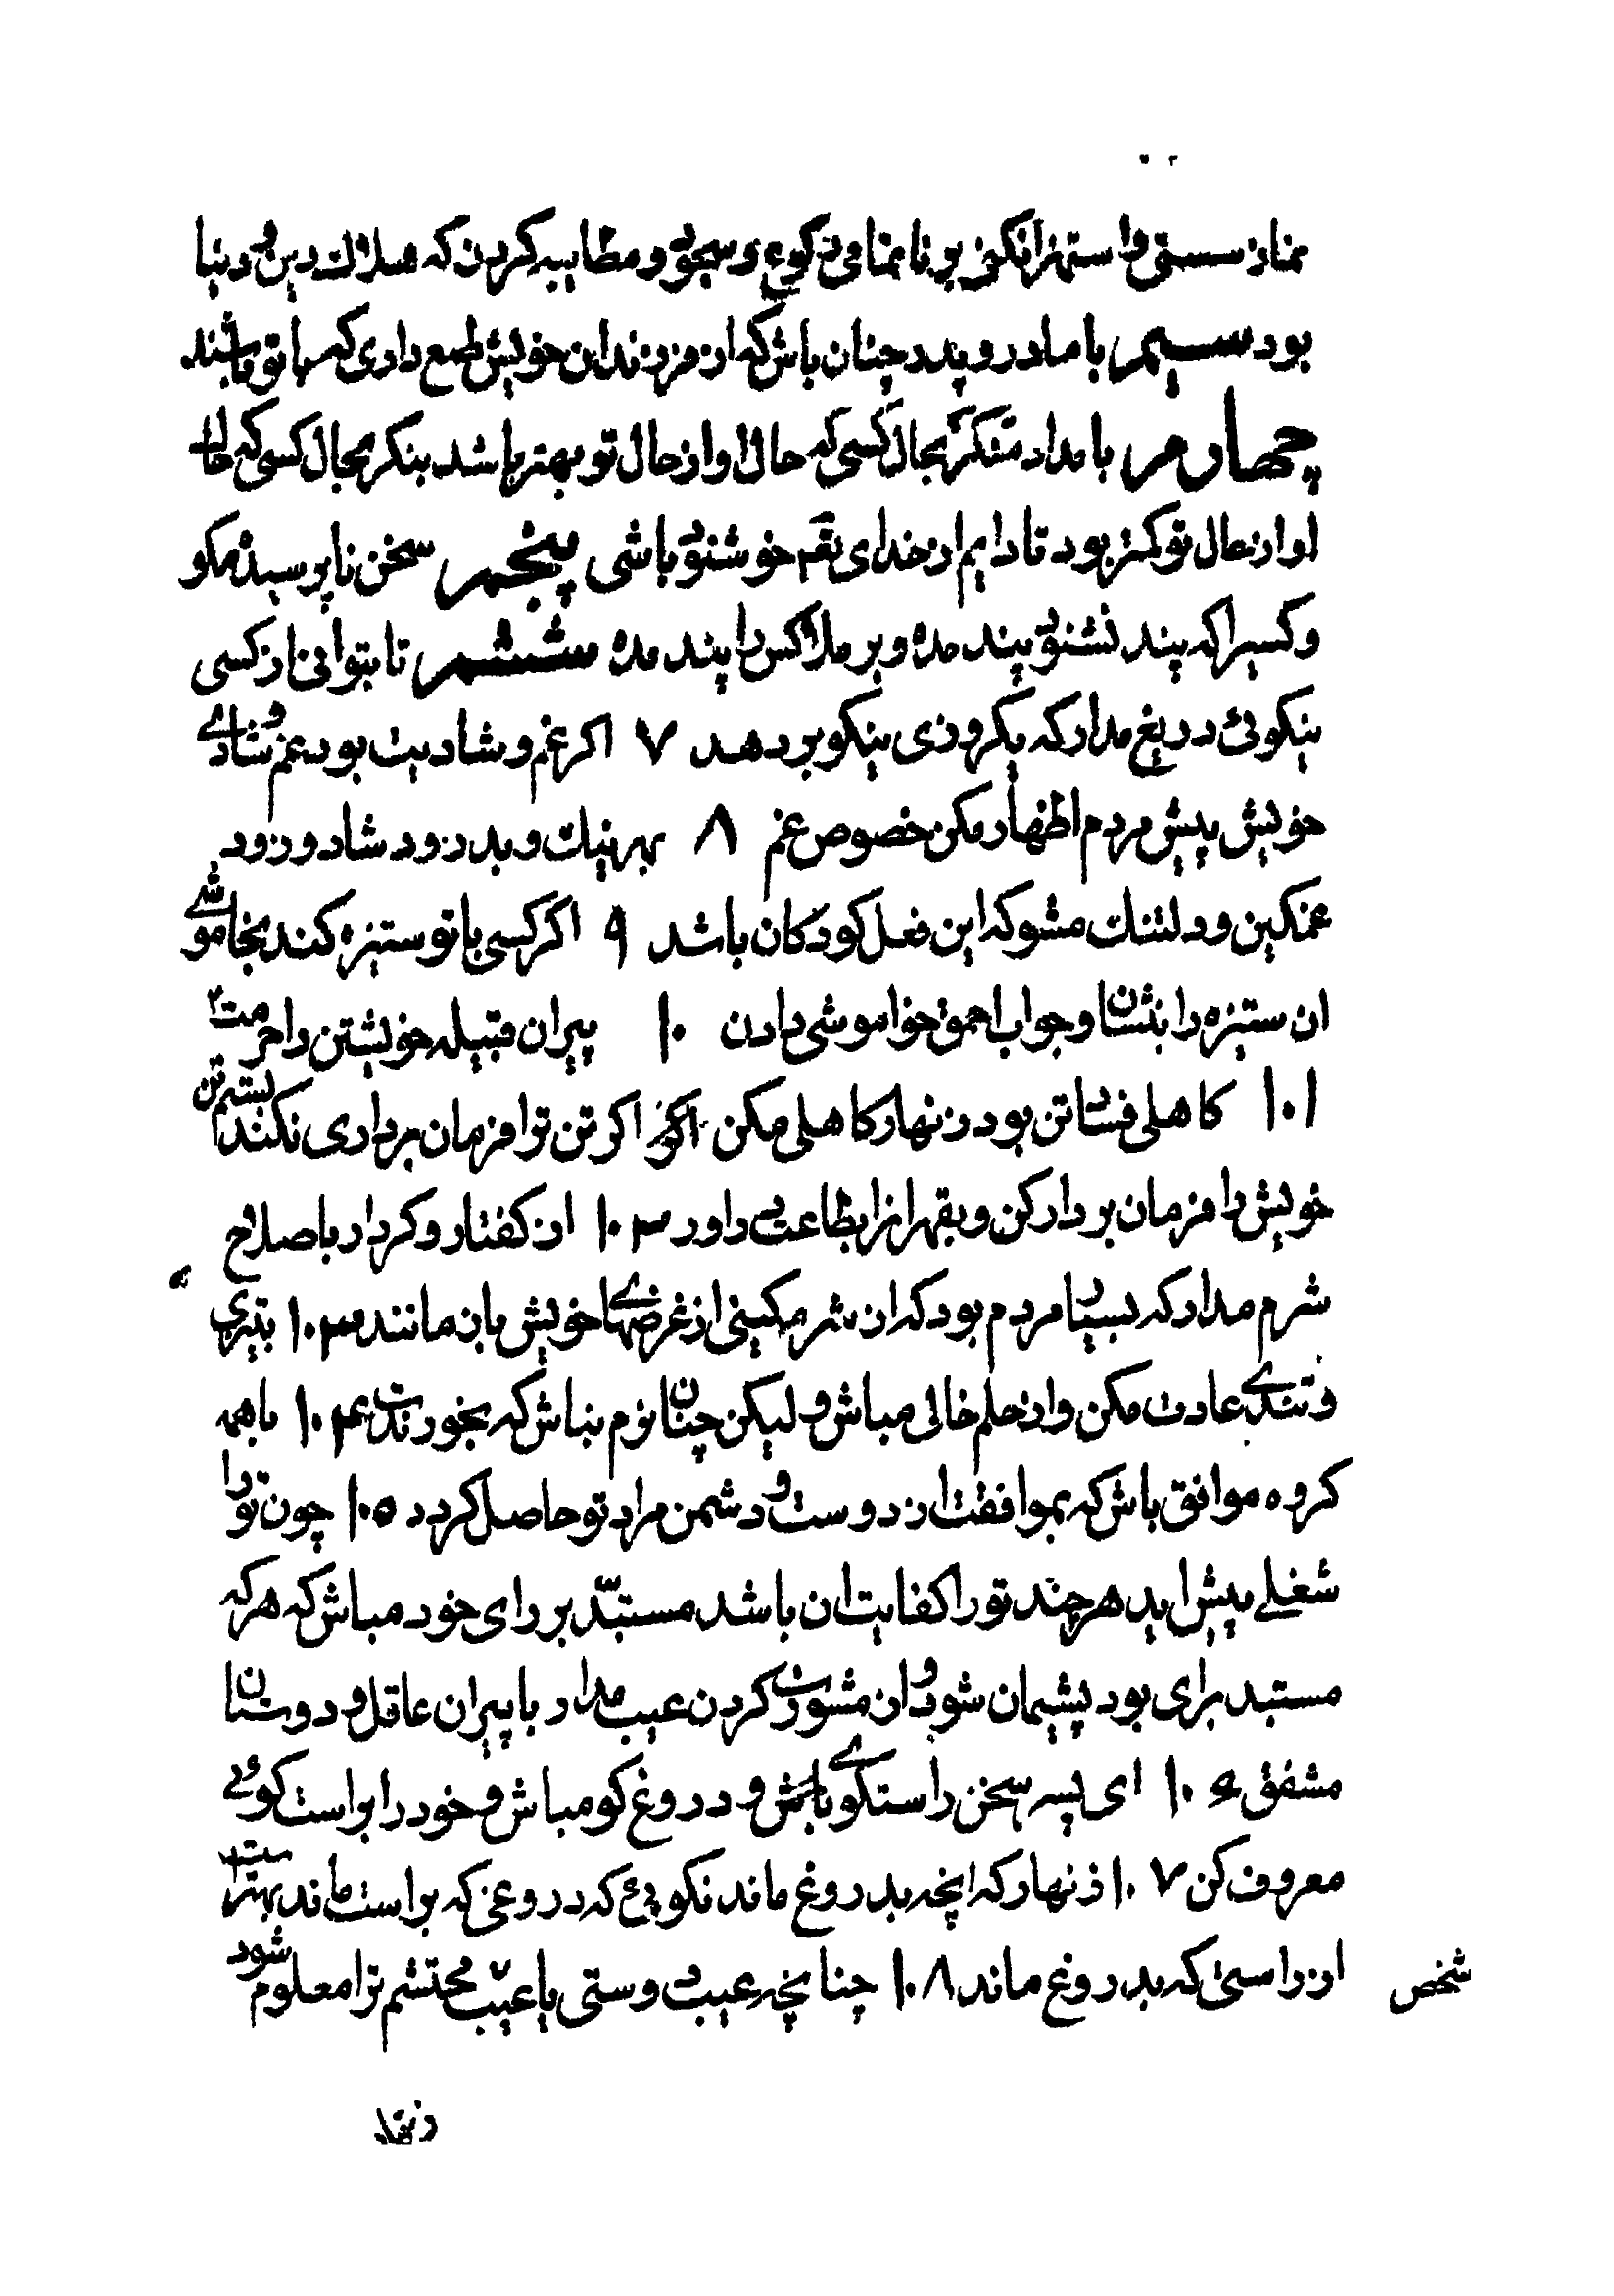 نماز سستی و استهزا نکنی بر نا تمامی رکوع و سجود و مطایبه کردن که هلاک دین و دنیا
بود سیم با مادر و پدر چنان باش که از فرزندان خویش طمع داری که با تو باشند
چهارم بامداد منکر بحال کسی که حال او از حال تو بهتر باشد بنکر بحال کسی که حال
او از حال تو کمتر بود تا دایم از خدای تعم خوشنود باشی پنجم سخن نا پرسیده مکو
و کسیرا که پند نشنود پند مده و بر ملا کس را پند مده ششم تا بتوانی از کسی
نیکوئی دریغ مدار که یکروزی نیکو بر دهد ۷ اکر غم و شادیت بود غم و شادی
خویش پیش مردم اظهار مکن خصوص غم ۸ بهر نیک و بد زود شاد و زود
غمکین و دلتنک مشو که این فعل کودکان باشد ۹ اکر کسی با تو ستیزه کند بخاموشی
ان ستیزه را بنشان و جواب احمق خواموشی دادن ۱۰ پیران قبیله خویشتن را حرمت
۱۰۱ کاهلی فساد تن بود زنهار کاهلی مکن اکر تن ترا فرمان برداری نکند
خویش را فرمان بردار کن و بقهر انرا بطاعت در اور ۱۰۲ از کفتار و کردار با صلاح
شرم مدار که بسیار مردم بود که از شرمکینی از غرضهای خویش بازمانند ۱۰۳ بتیزی
و تندی عادت مکن و از حلم خالی مباش و لیکن چنان نرم مباش که بخورندت ۱۰۴ با همه
کروه موافق باش که بموافقت از دوست و دشمن مراد تو حاصل کردد ۱۰۵ چون تو را
شغلی پیش اید هر چند تو را کفایت ان باشد مستبدّ بر رای خود مباش که هر که
مستبد برای بود پشیمان شود و از مشورت کردن عیب مدار با پیران عاقل و دوستان
مشفق ۱۰۶ ای پسر سخن راستکوی باش و دروغ کو مباش و خود را براست کوئی
معروف کن ۱۰۷ زنهار که انچه بدروغ ماند نکوئی که دروغی که براست ماند بهتر است
از راستی که بدروغ ماند ۱۰۸ چنانچه عیب دوستی یا عیب محتشم ترا معلوم شود
شخص
زنهار